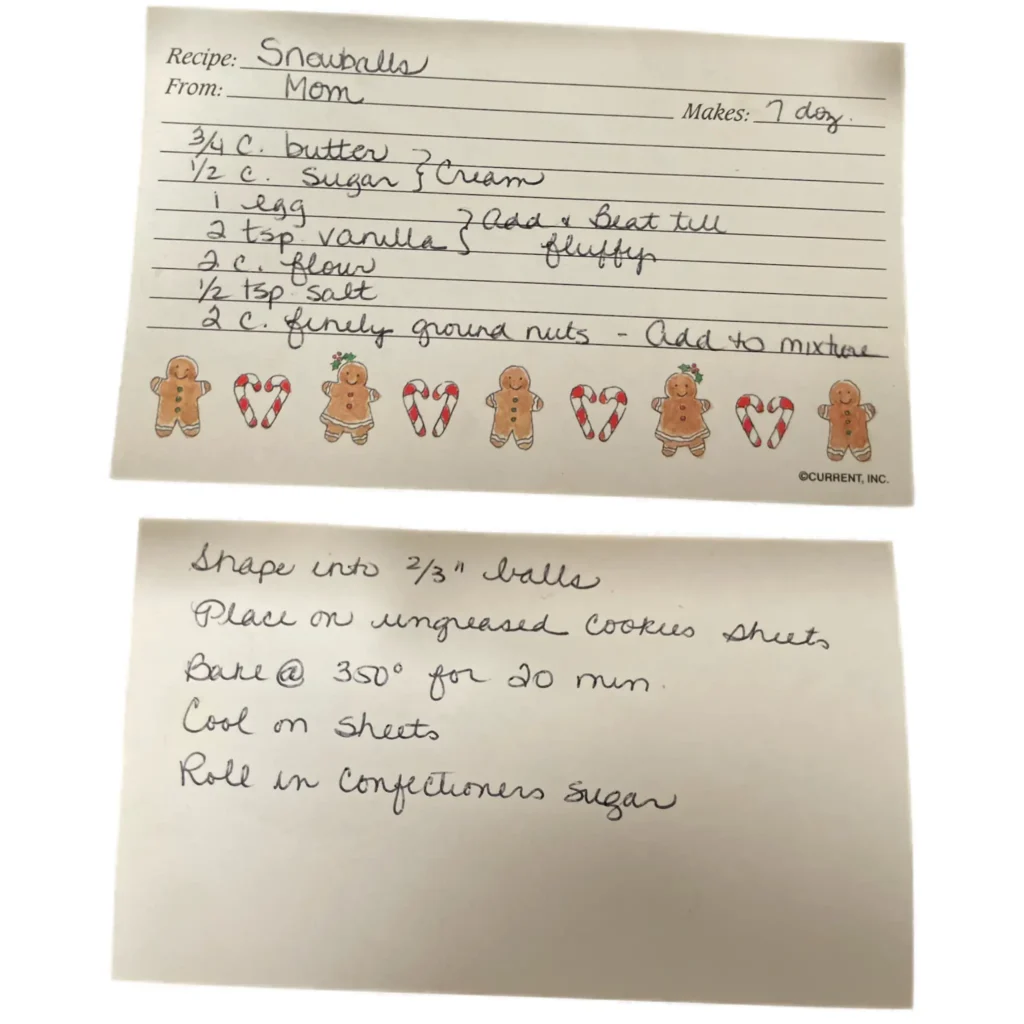 Recipe: Snowballs
From: Mom
Makes: 7 doz.
3/4 c. butter } Cream
1/2 c. sugar
1 egg } Add & Beat till
2 tsp vanilla fluffy
2 c. flour
1/2 tsp salt
2 c. finely ground nuts - Add to mixture
©CURRENT, INC.
Shape into 2/3" balls
Place on ungreased cookies sheets
Bake @ 350° for 20 min.
Cool on sheets
Roll in confectioners sugar